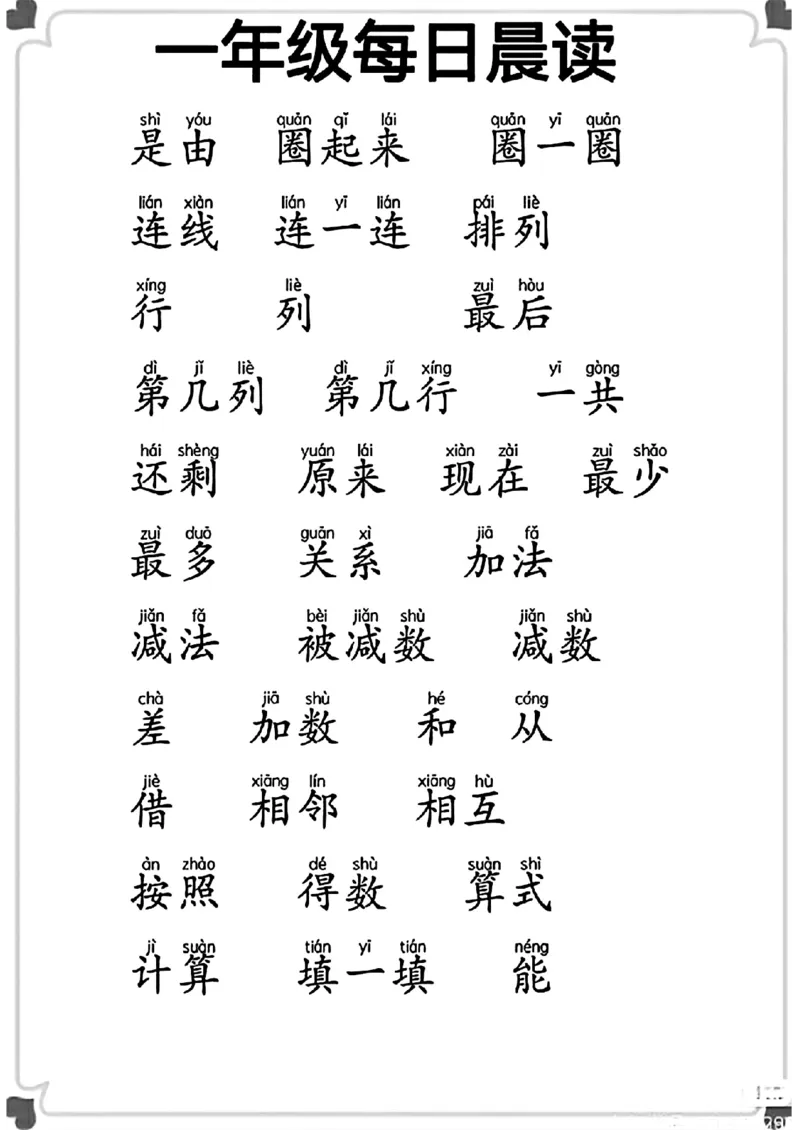 一年级每日晨读
shì yóu quān qǐ lái quān yī quān
是由 圈起来 圈一圈
lián xiàn lián yī lián pái liè
连线 连一连 排列
xíng liè zuì hòu
行 列 最后
dì jǐ liè dì jǐ xíng yī gòng
第几列 第几行 一共
hái shèng yuán lái xiàn zài zuì shǎo
还剩 原来 现在 最少
zuì duō guān xì jiā fǎ
最多 关系 加法
jiǎn fǎ bèi jiǎn shù jiǎn shù
减法 被减数 减数
chà jiā shù hé cóng
差 加数 和 从
jiè xiāng lín xiāng hù
借 相邻 相互
àn zhào dé shù suàn shì
按照 得数 算式
jì suàn tián yī tián néng
计算 填一填 能